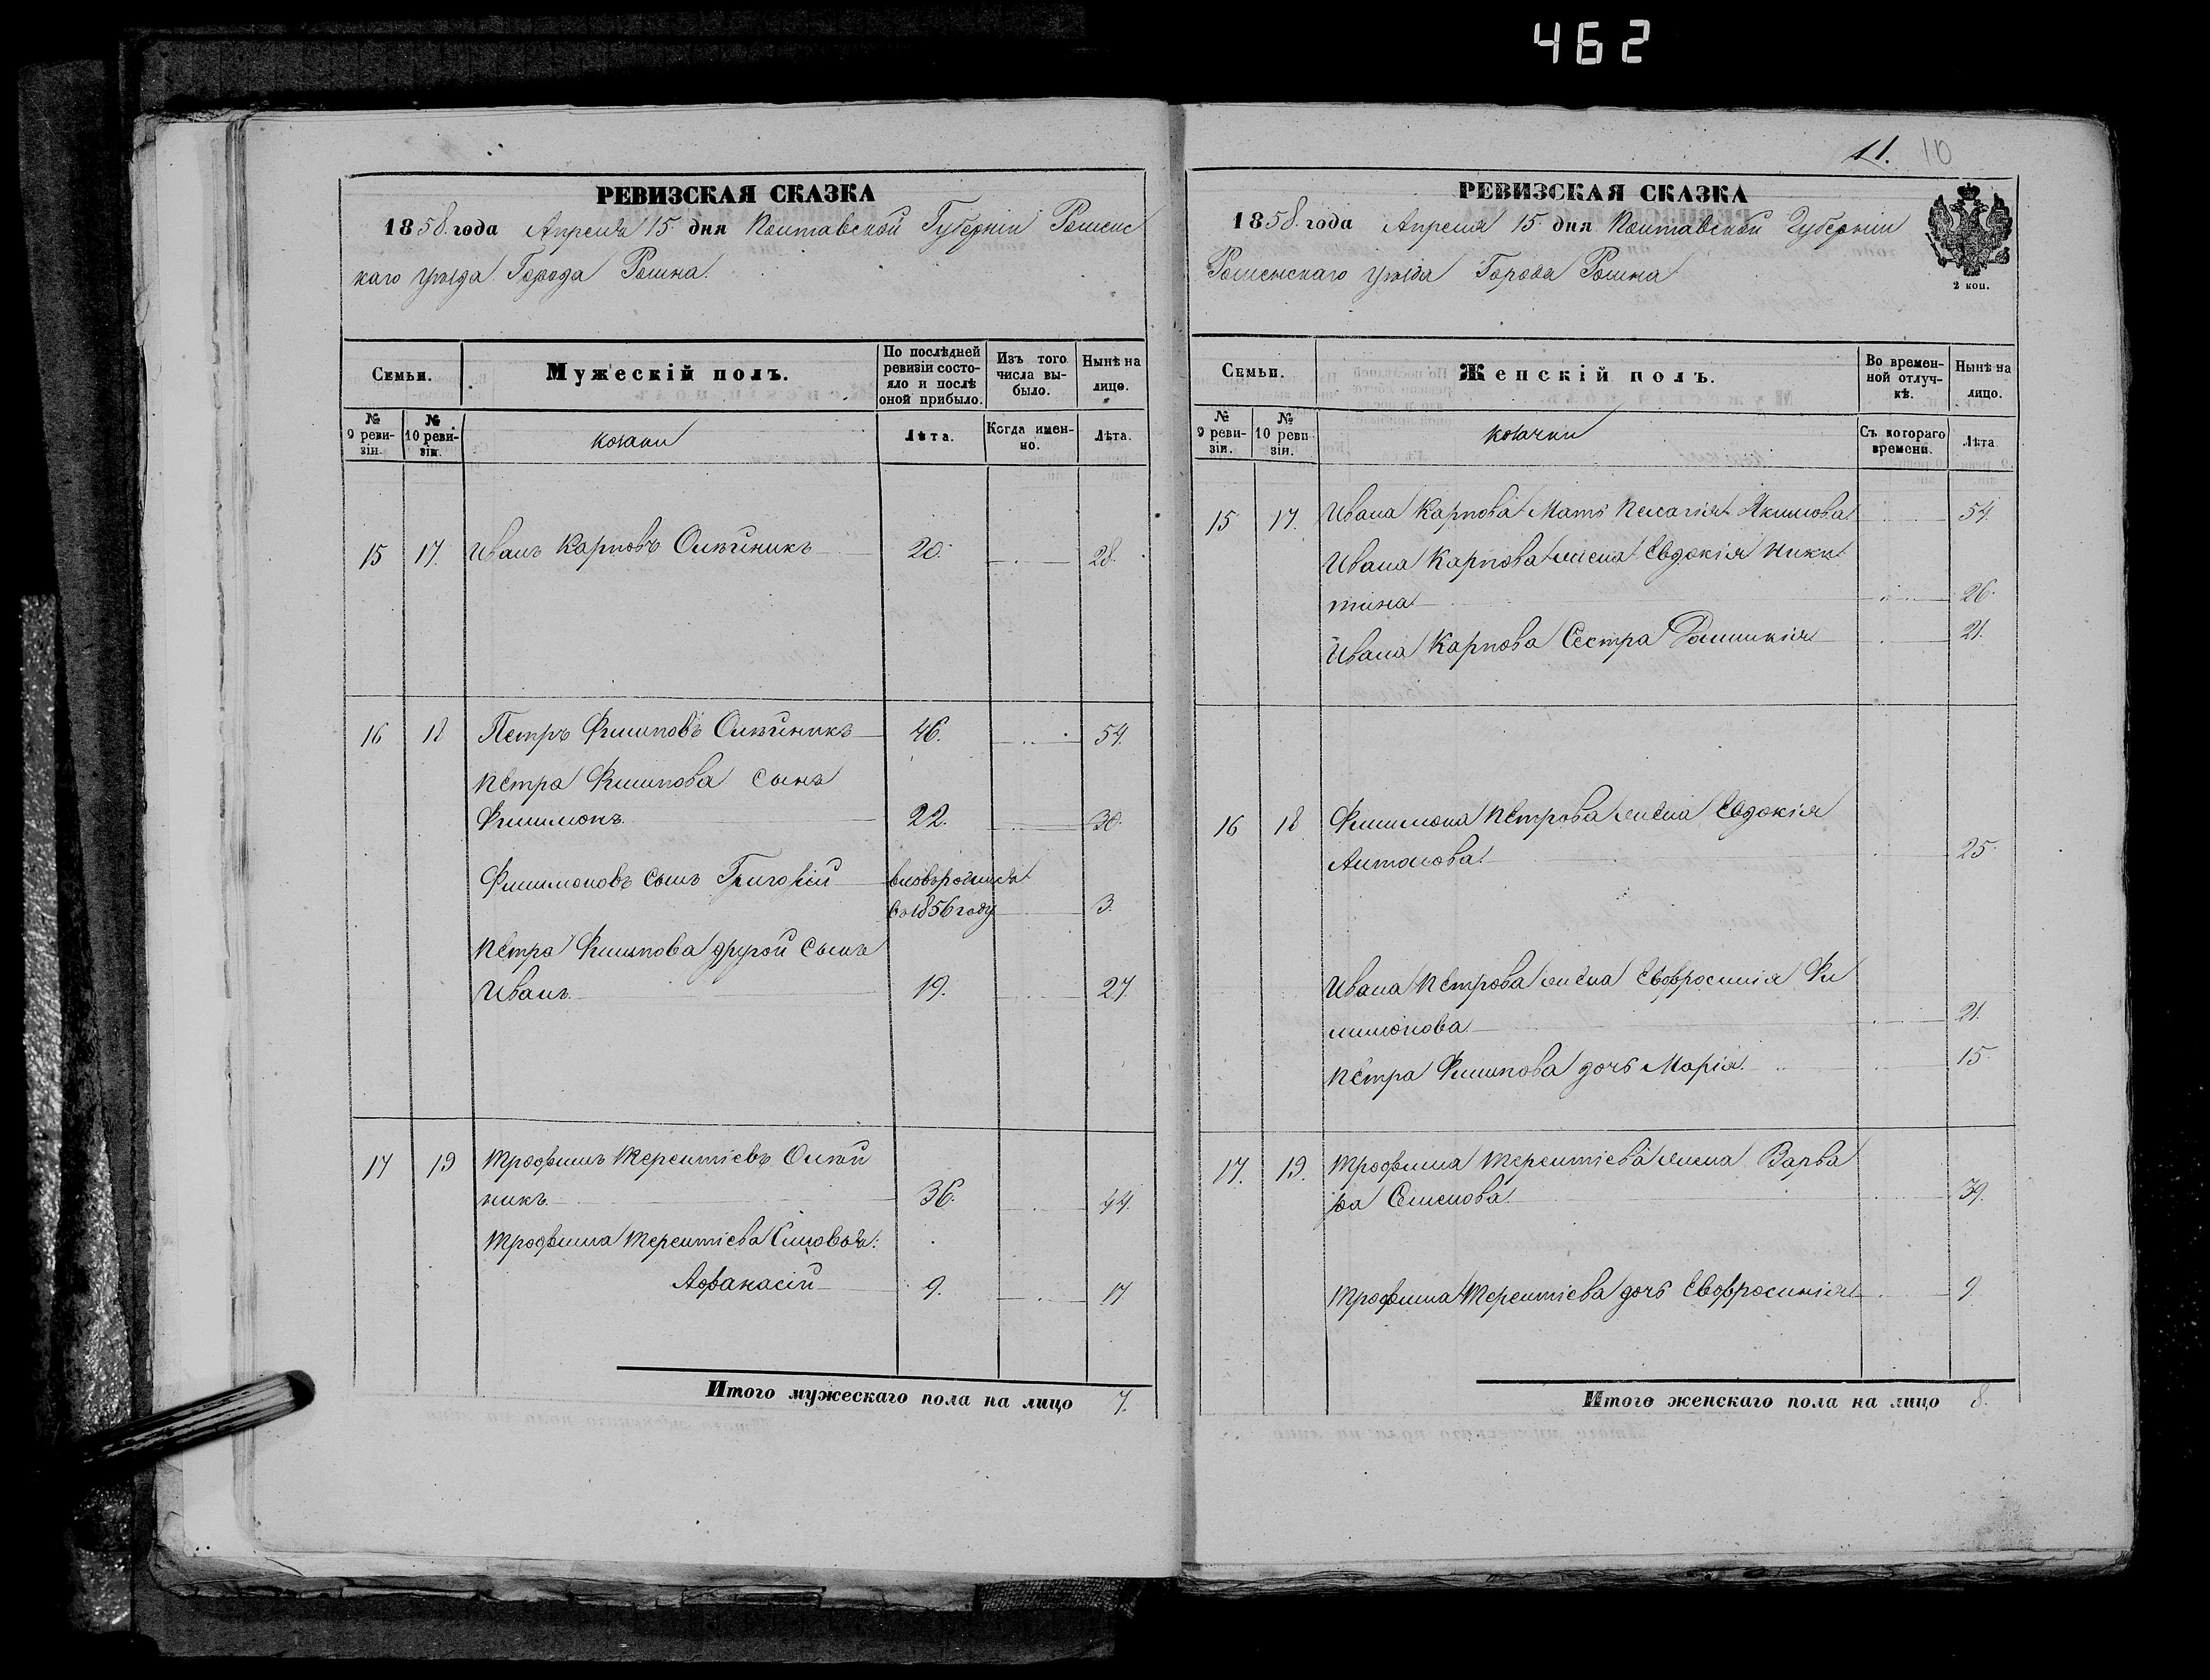 462
11. 10
РЕВИЗСКАЯ СКАЗКА
1858. года Апреля 15. дня Полтавской Губерніи Роменс
каго уѣзда Города Ромна.
Семьи.
Мужескій полъ.
По послѣдней ревизіи состояло и послѣ оной прибыло.
Изъ того числа выбыло.
Нынѣ на лицо.
№ 9 ревизіи.
№ 10 ревизіи.
козаки
Лѣта.
Когда именно.
Лѣта.
15 17. Иванъ Карповъ Олѣйникъ 20. 28.
16 18 Петръ Филиповъ Олѣйникъ 46. 54.
Петра Филипова сынъ
Филимонъ 22. 30.
Филимоновъ сынъ Григорій вновьродился
въ 1856 году 3.
Петра Филипова другой сынъ
Иванъ 19. 27.
17 19 Трофимъ Терентіевъ Олѣй
никъ 36. 44.
Трофима Терентіева Синовья:
Афанасій 9. 17
Итого мужескаго пола на лицо 7.
РЕВИЗСКАЯ СКАЗКА
1858. года Апреля 15. дня Полтавской Губерніи
Роменскаго уѣзда Города Ромна
2 коп.
Семьи.
Женскій полъ.
Во временной отлучкѣ.
Нынѣ на лицо.
№ 9 ревизіи.
№ 10 ревизіи.
козачки
Съ котораго времени.
Лѣта.
15 17. Ивана Карпова Мать Пелагія Якимова 54.
Ивана Карпова жена Евдокія Ники
тина 26.
Ивана Карпова Сестра 21.
16 18 Филимона Петрова жена Евдокія
Антонова 25.
Ивана Петрова жена Евфросинія Фи
лимонова 21.
Петра Филипова дочь Марія 15.
17. 19. Трофима Терентіева жена Варва
ра Семенова 39.
Трофима Терентіева дочь Евфросинія 9.
Итого женскаго пола на лицо 8.